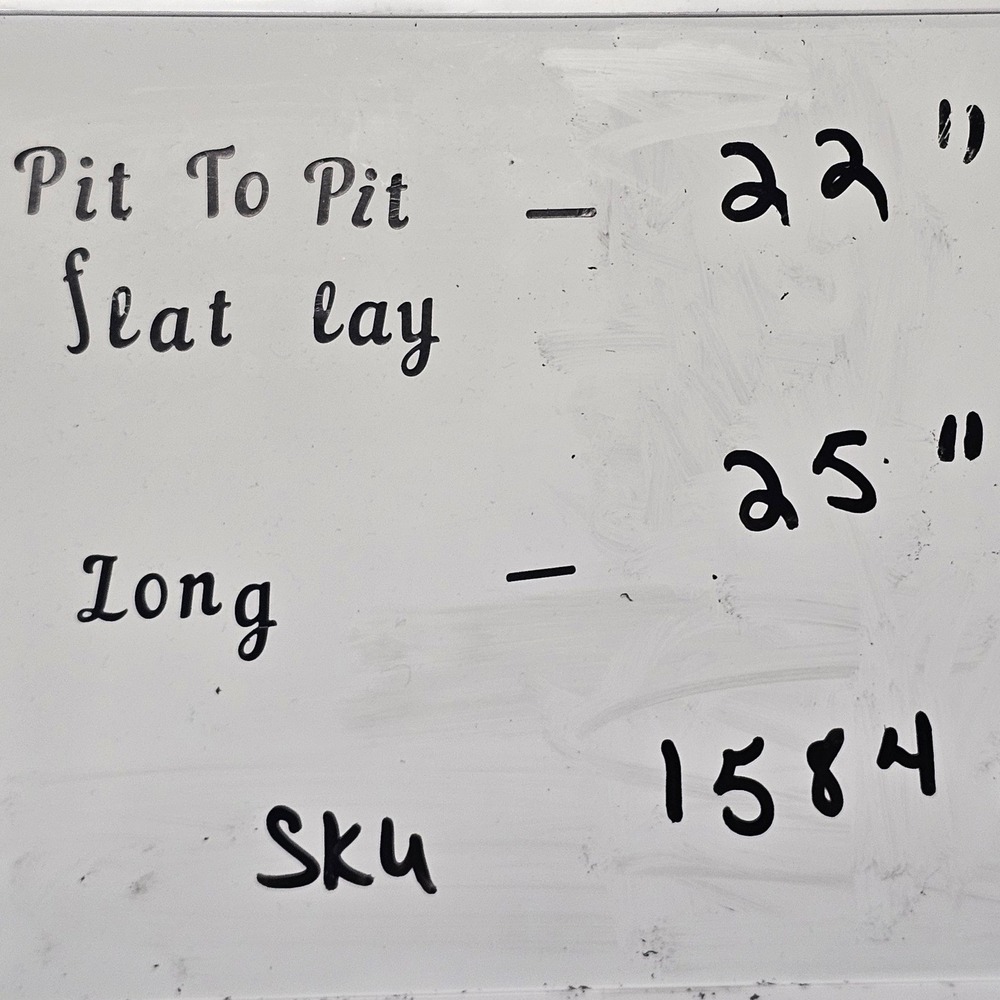 Pit To Pit — 22"
flat lay
Long — 25"
SKU 1584